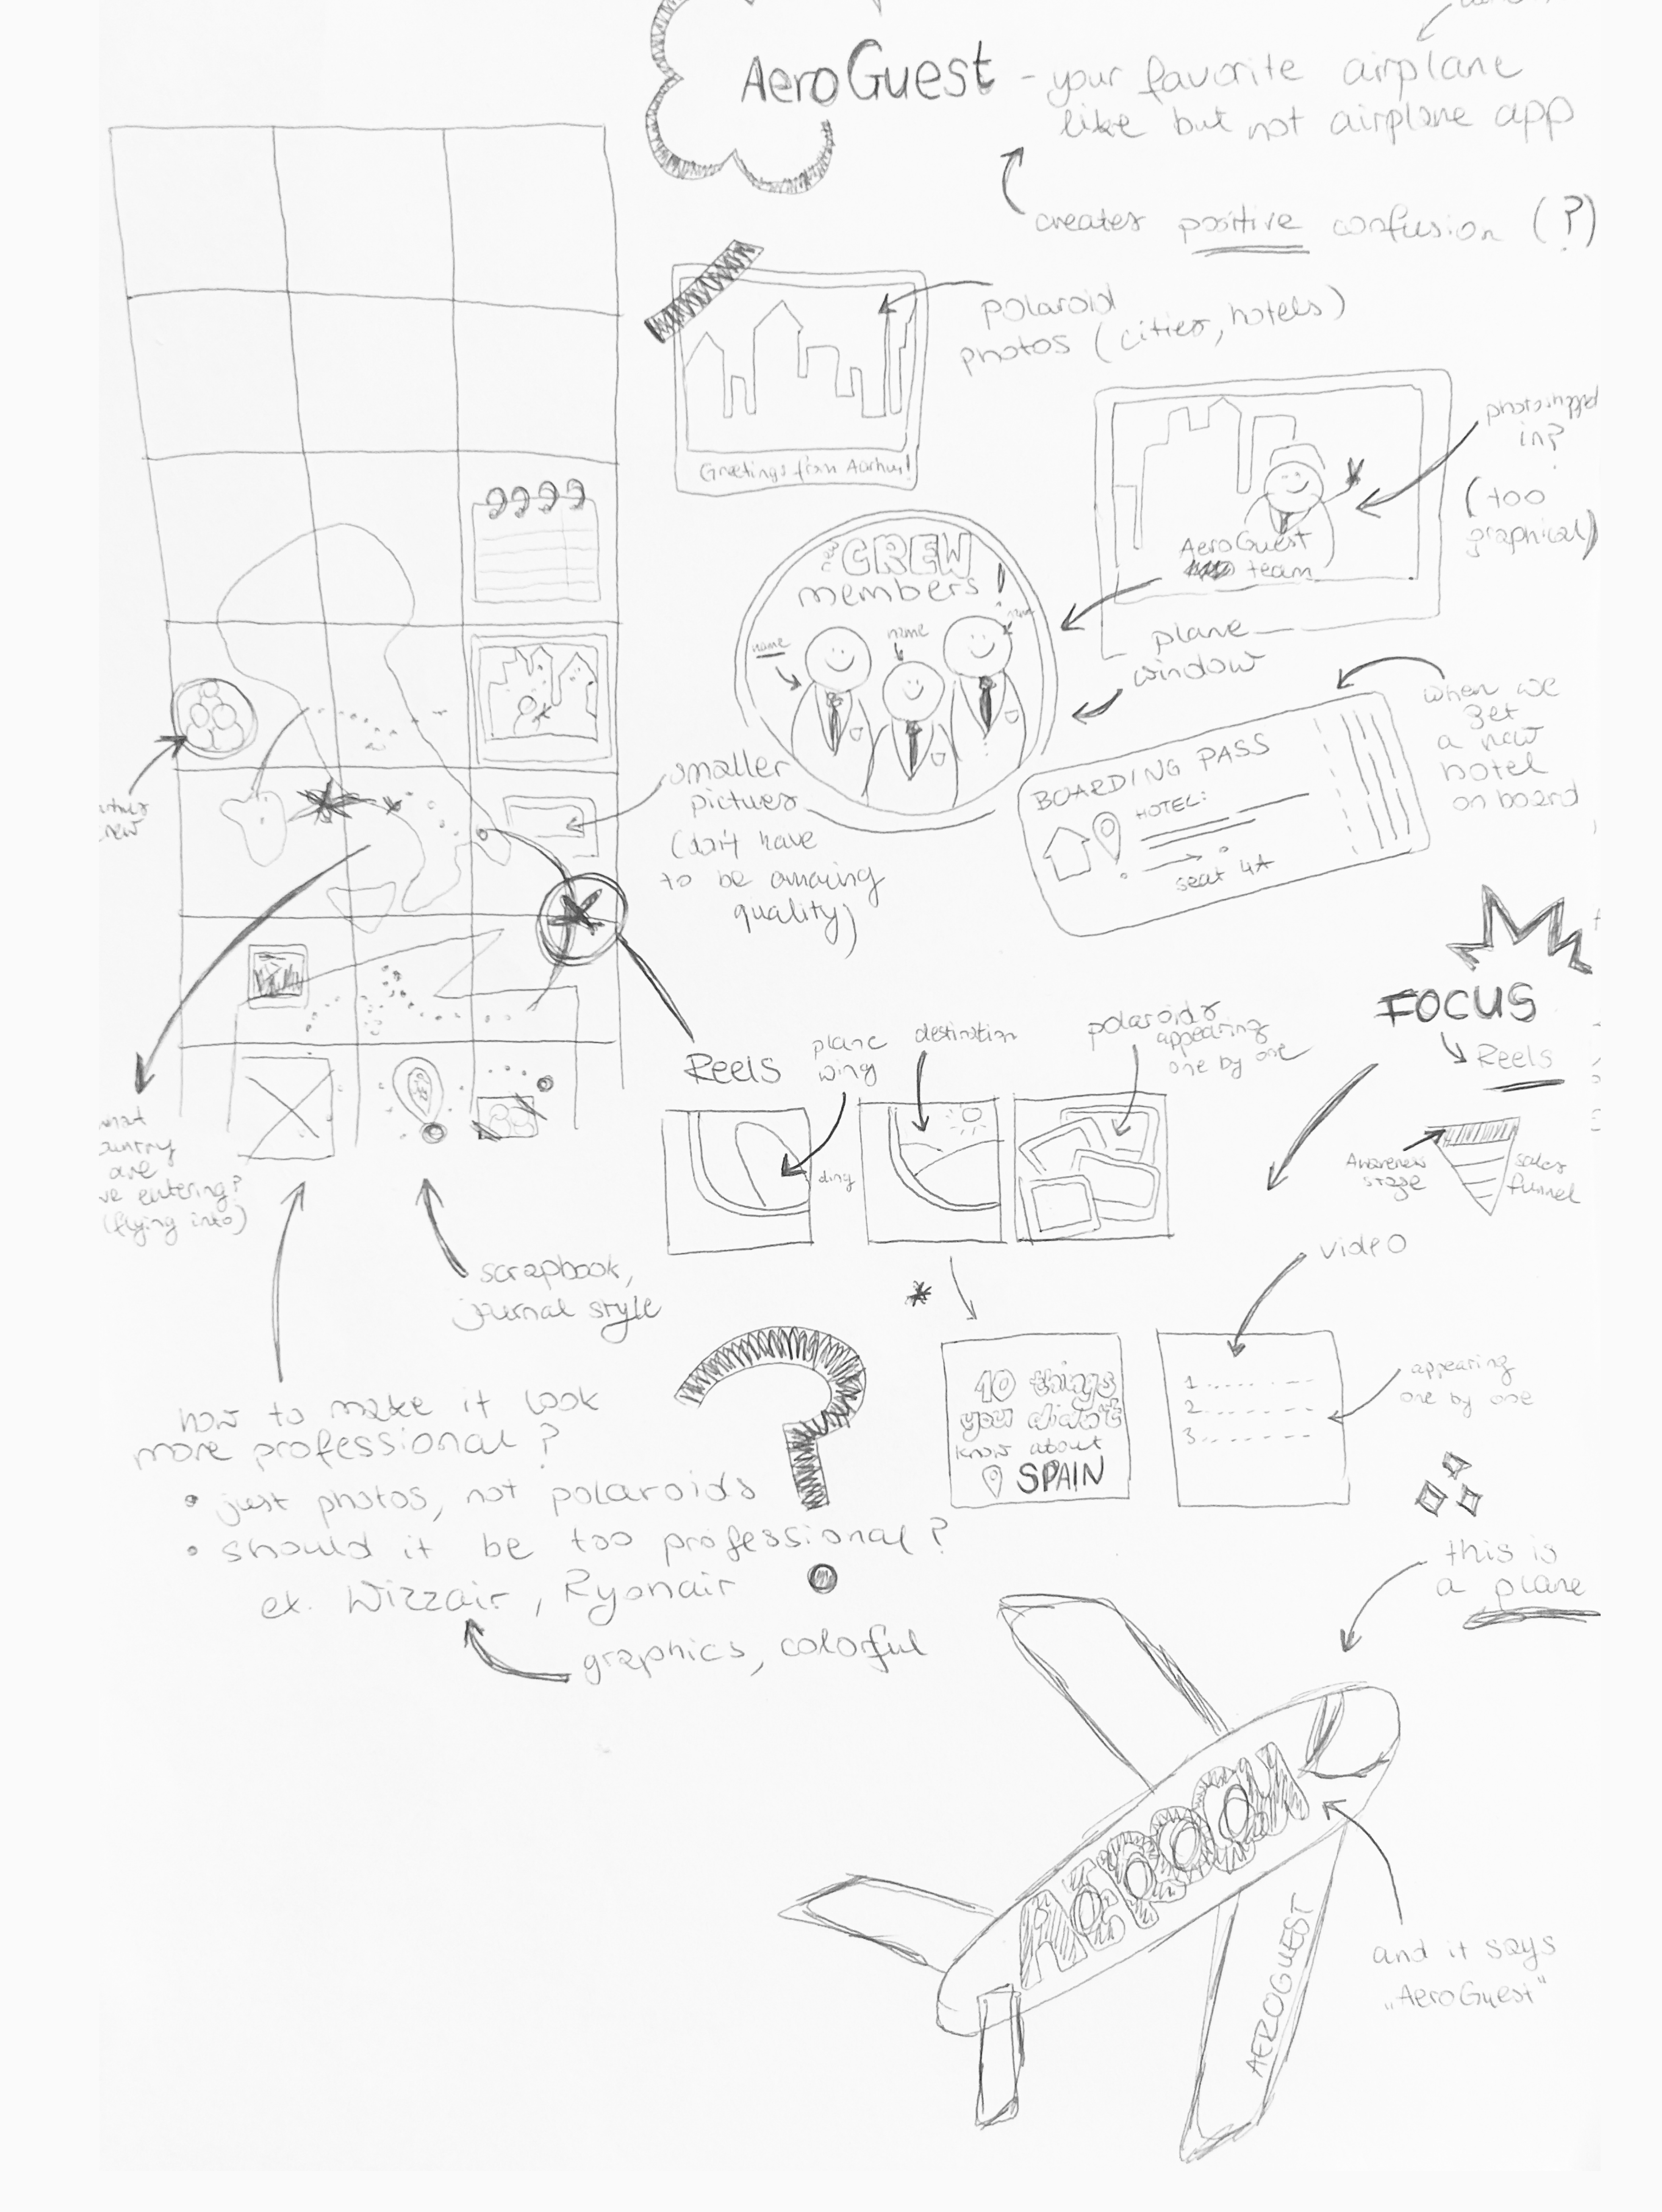 AeroGuest - your favorite airplane
like but not airplane app
creates positive confusion (?)
polaroid
photos (cities, hotels)
Greetings from Aarhus!
photoshopped
in?
(too
graphical)
AeroGuest
team
CREW
members!
name
name
name
plane
window
when we
get
a new
hotel
on board
BOARDING PASS
HOTEL:
seat 4A
smaller
pictures
(don't have
to be amazing
quality)
FOCUS
Reels
Awareness
stage
sales
funnel
Reels
plane
wing
destination
polaroids
appearing
one by one
ding
are
entering?
(flying into)
scrapbook,
journal style
video
10 things
you didn't
know about
SPAIN
1
2
3
appearing
one by one
how to make it look
more professional?
• just photos, not polaroids
• should it be too professional?
ex. Wizzair, Ryonair
graphics, colorful
this is
a plane
AEROGUEST
and it says
„AeroGuest"